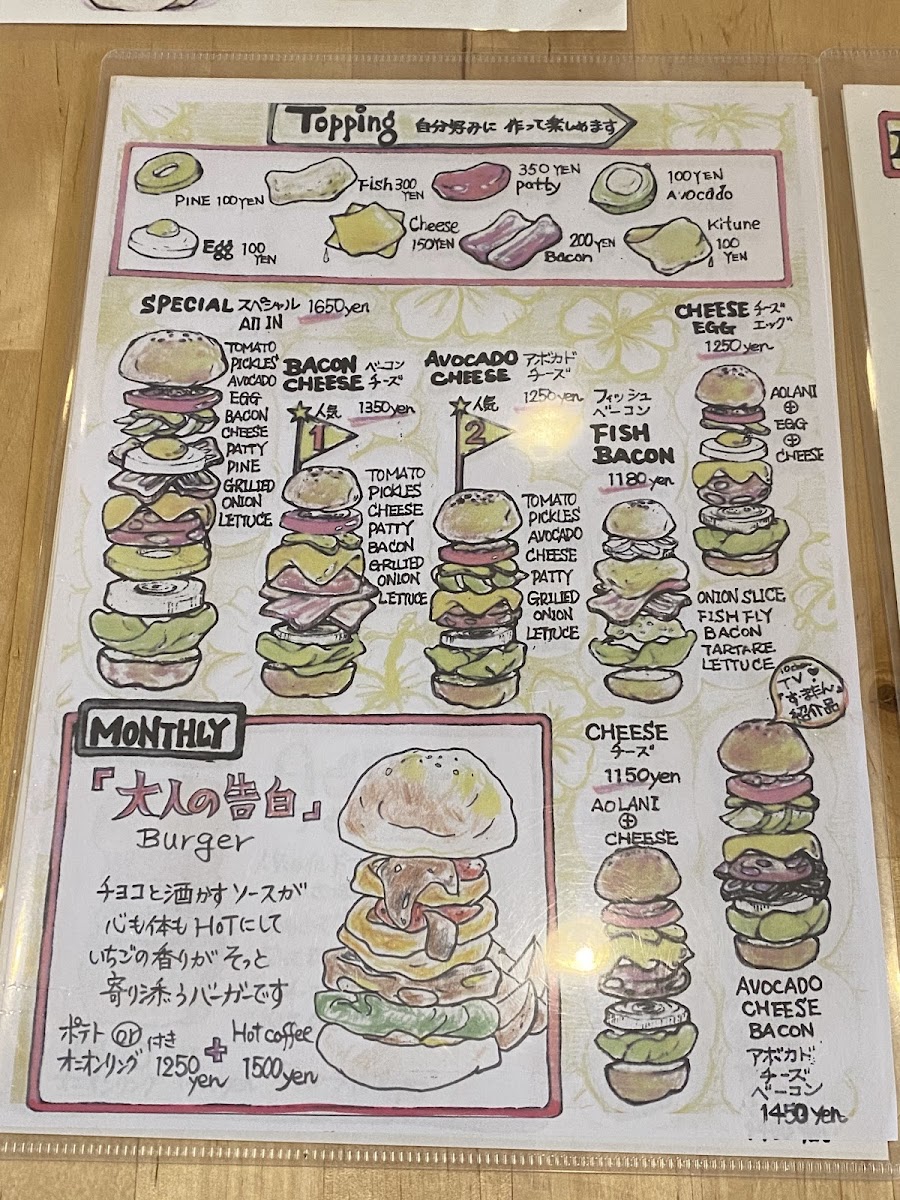 Topping 自分好みに 作って楽しめます
PINE 100YEN
Fish 300 YEN
350 YEN
Patty
100YEN
AVOCADO
Egg 100 YEN
Cheese
150YEN
200YEN
Bacon
Kitune
100
YEN
SPECIAL スペシャル 1650yen
All IN
TOMATO
PICKLES
AVOCADO
EGG
BACON
CHEESE
PATTY
PINE
GRILED
ONION
LETTUCE
BACON ベーコン
CHEESE チーズ
人気 1350yen
1
TOMATO
PICKLES
CHEESE
PATTY
BACON
GRILIED
ONION
LETTUCE
AVOCADO アボカド
CHEESE チーズ
人気 1250yen
2
TOMATO
PICKLES
AVOCADO
CHEESE
PATTY
GRILED
ONION
LETTUCE
フィッシュ
ベーコン
FISH
BACON
1180yen
ONION SLICE
FISH FLY
BACON
TARTARE
LETTUCE
CHEESE チーズ
EGG エッグ
1250yen
AOLANI
+
EGG
+
CHEESE
MONTHLY
『大人の告白』
Burger
チョコと酒かすソースが
心も体もHOTにして
いちごの香りがそっと
寄り添うバーガーです
ポテト or 付き
オニオンリング 1250 yen
+ Hot coffee
1500yen
CHEESE
チーズ
1150yen
AOLANI
+
CHEESE
TV
紹介品
AVOCADO
CHEESE
BACON
アボカド
チーズ
ベーコン
1450yen